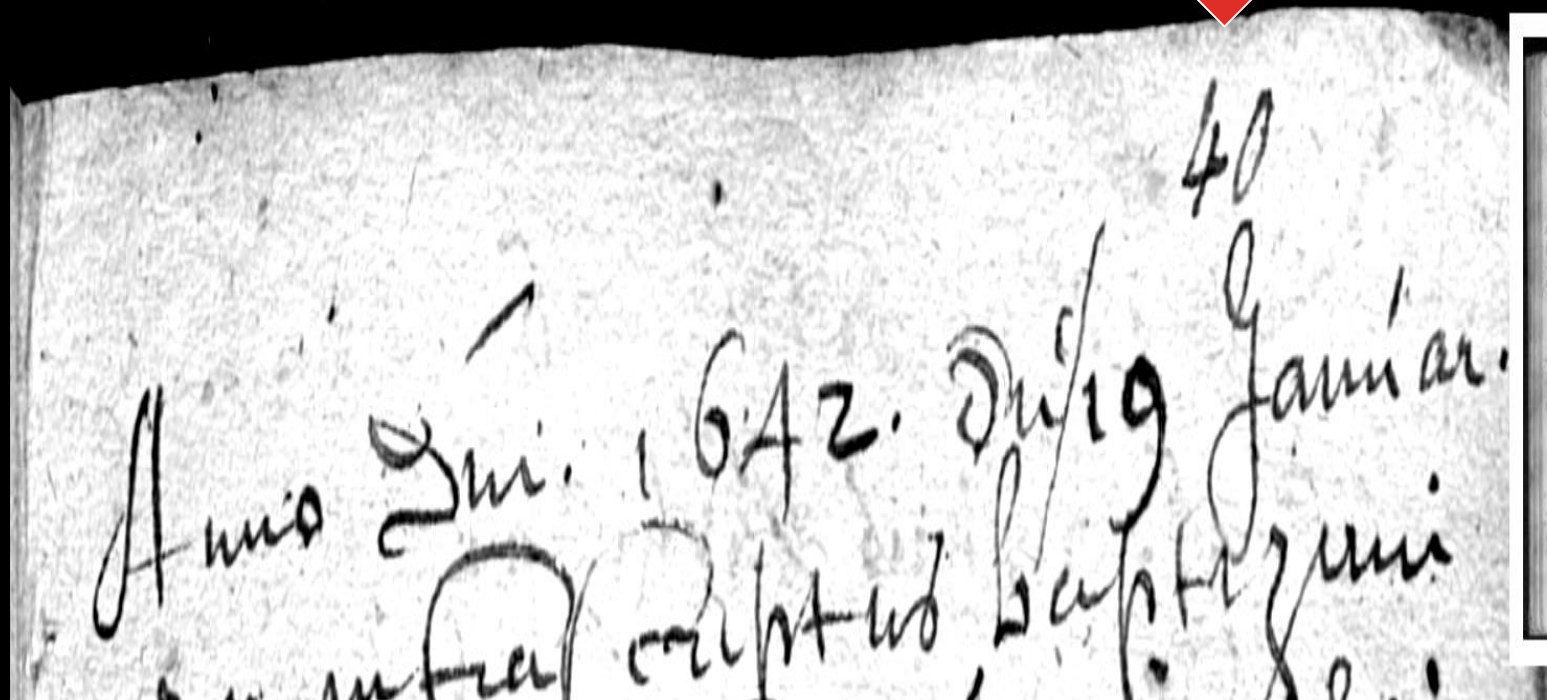 40
Anno Dni. 1642. Die 19 Januar.
infra scriptus baptizavi